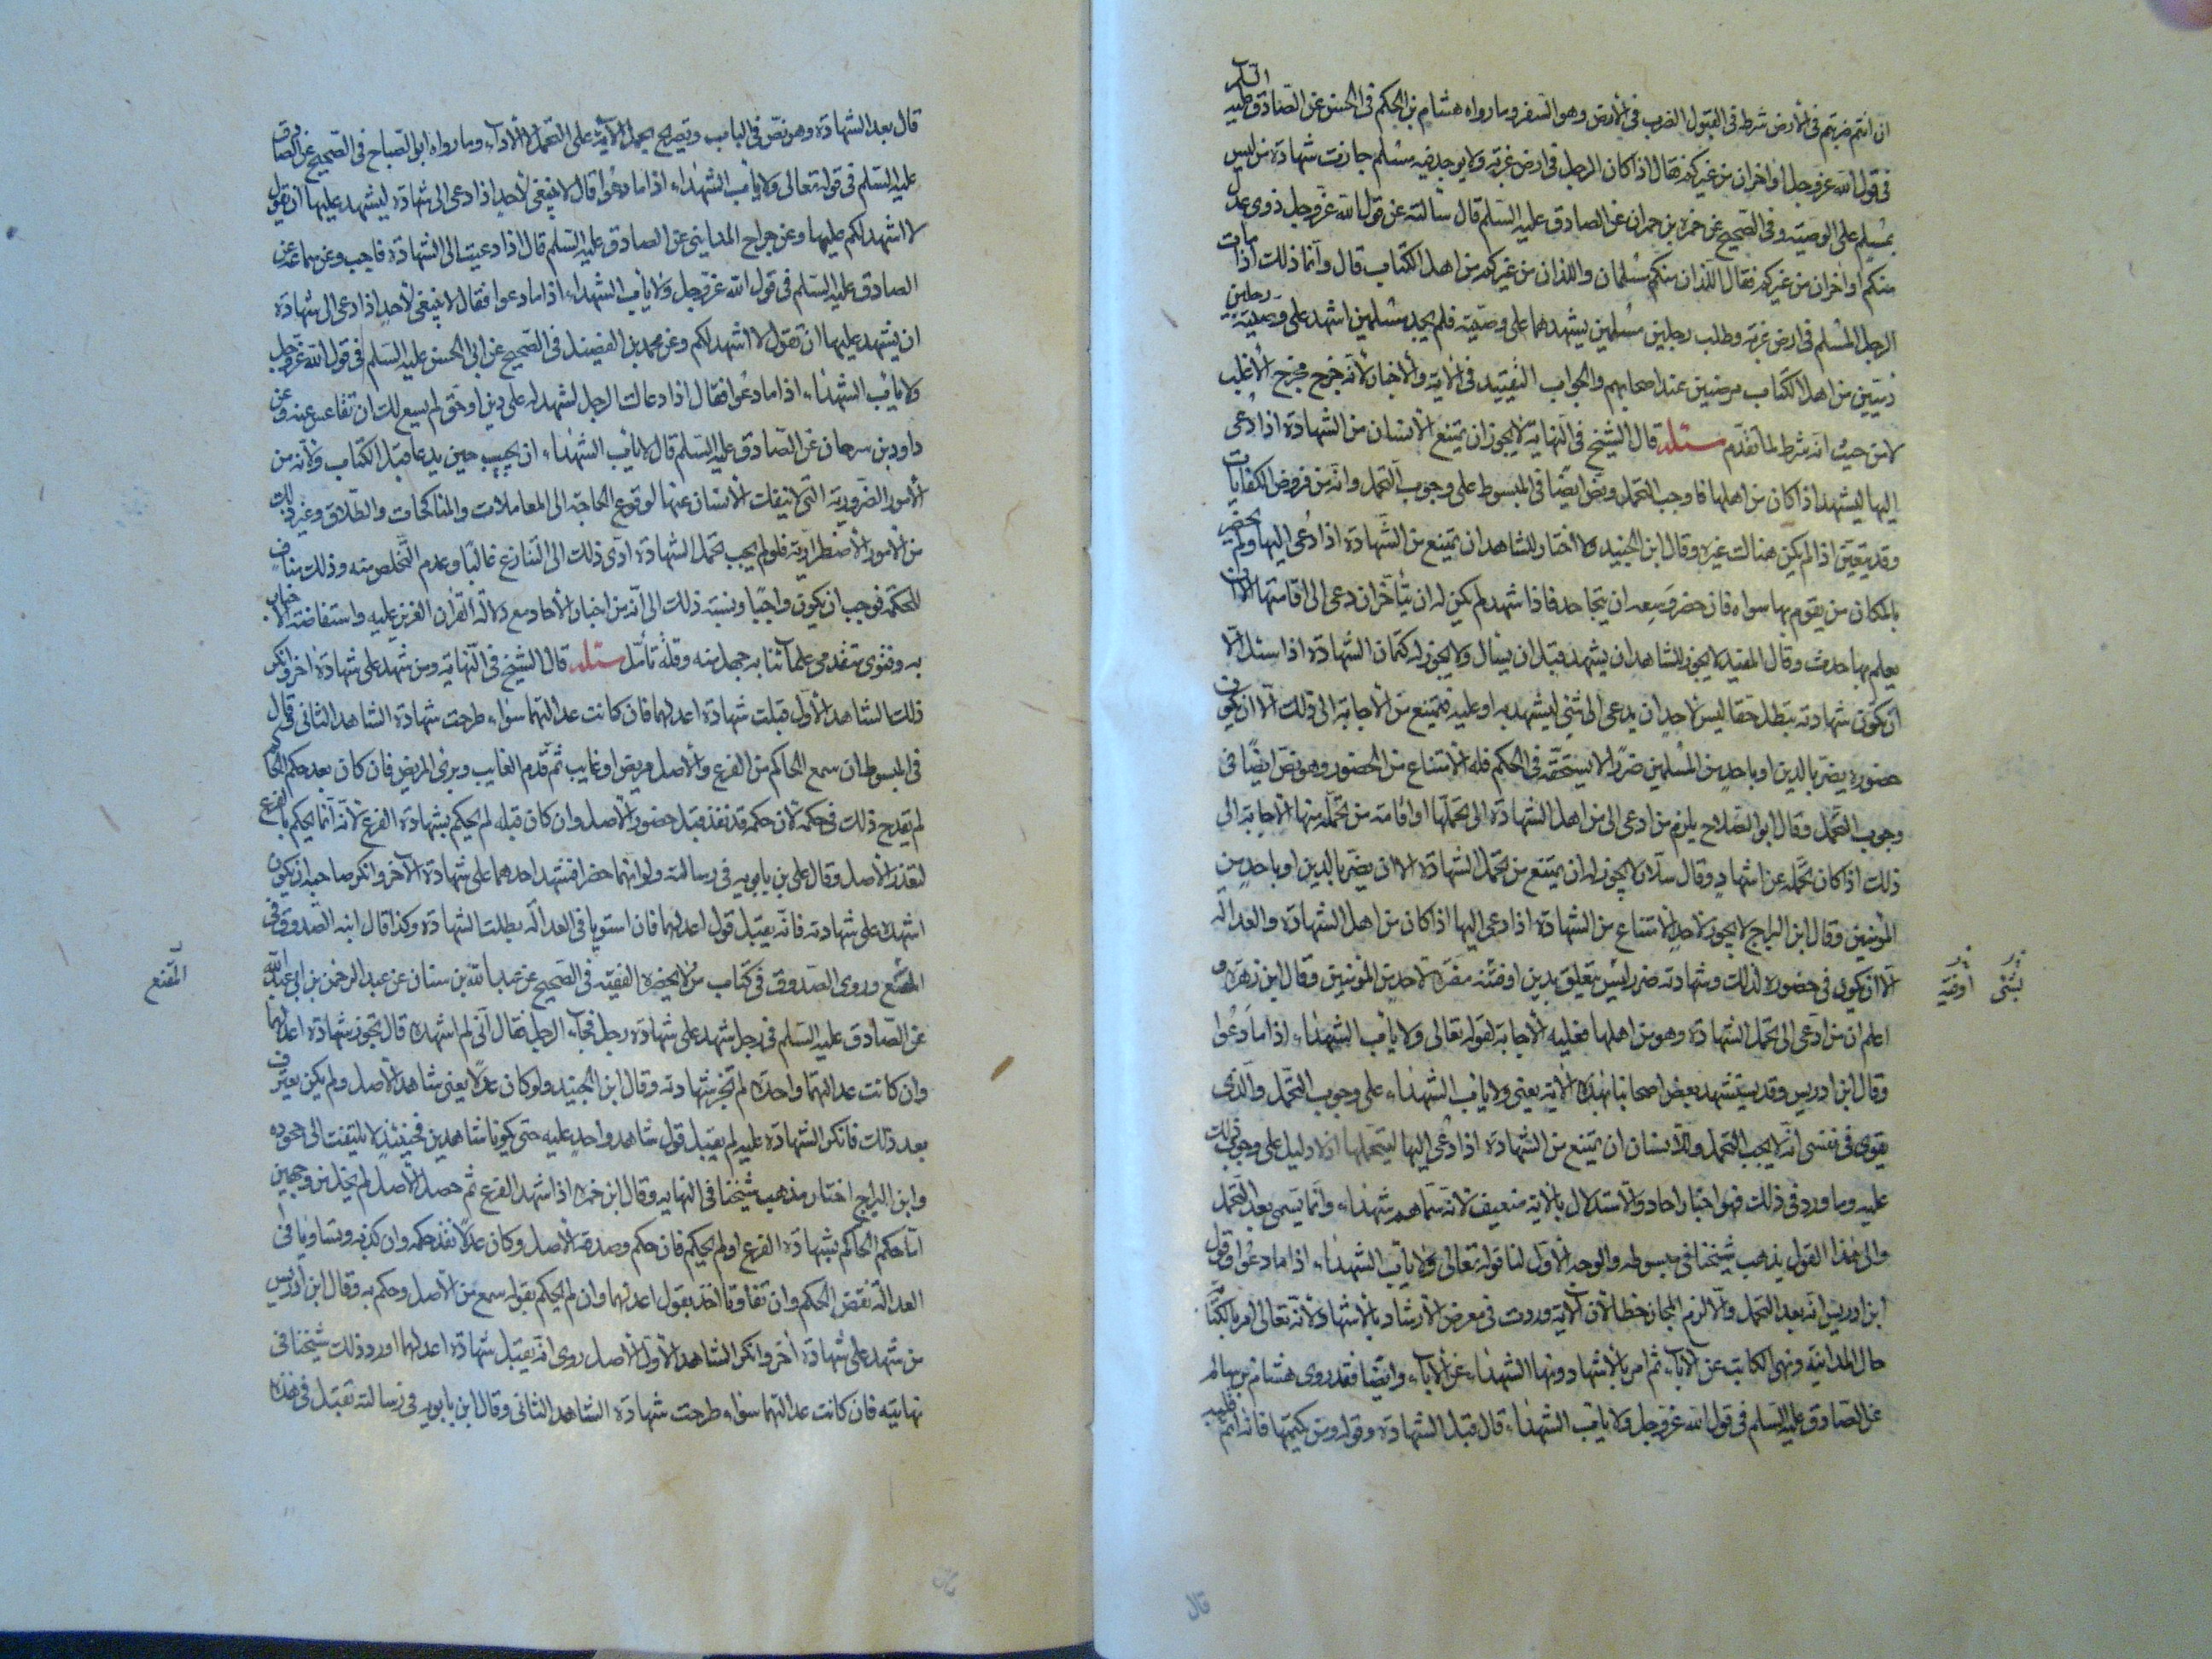 ان انتم ضربتم فى الأرض شرطه فى القبول الضرب فى الأرض وهو السفر وما رواه هشام بن الحكم فى الحسن عن الصادق عليه السلم
فى قول الله عز وجل او اخران من غيركم فقال اذا كان الرجل فى ارض غربة ولا يوجد فيه مسلم جازت شهادة من ليس
بمسلم على الوصية وفى الصحيح عن حمزه بن حمران عن الصادق عليه السلم قال سألته عن قول الله عز وجل ذوى عدل
منكم او اخران من غيركم فقال اللذان منكم مسلمان واللذان من غيركم من اهل الكتاب قال وانما ذلك اذا مات
الرجل المسلم فى ارض غربة وطلب رجلين مسلمين يشهدهما على وصيته فلم يجد مسلمين اشهد على وصيته رجلين
ذميين من اهل الكتاب مرضيين عند اصحابهم والجواب التقييد فى الاية والاخبار لأنه خرج مخرج الأغلب
لا من حيث انه شرط لما تقدم مسئله قال الشيخ فى النهاية لا يجوز ان يمتنع الانسان من الشهادة اذا دعى
اليها ليشهد اذا كان من اهلها فاوجب التحمل ونص ايضا فى المبسوط على وجوب التحمل وانه من فروض الكفايات
وقد يتعين اذا لم يكن هنالك غيره وقال ابن الجنيد ولا اختار للشاهد ان يمتنع من الشهادة اذا دعى اليها ولم يحضر
بالمكان من يقوم بها سواه فان حضر وسعه ان يتجاحد فاذا شهد لم يكن له ان يتأخر ان دعى الى اقامتها الا ان
يعلم بها حدث وقال المفيد لا يجوز للشاهد ان يشهد قبل ان يسأل ولا يجوز له كتمان الشهادة اذا سئل الا
ان تكون شهادته تبطل حقا ليس لأحد ان يدعى الى شئ ليشهد به او عليه فيمتنع من الأجابة الى ذلك الا ان يكون
حضوره يضر بالدين او باحد من المسلمين ضررا لا يستحقه فى الحكم فله الأمتناع من الحضور وهو نص ايضا فى
وجوب التحمل وقال ابو الصلاح يلزم من ادعى الى من اهل الشهادة الى تحملها او اقامة من تحمله منها الأجابة الى
ذلك اذا كان تحمله عن اشهاد وقال سلار لا يجوز له ان يمتنع من تحمل الشهادة الا ان يضر بالدين او باحد من
المؤمنين وقال ابن البراج لا يجوز لأحد الأمتناع من الشهادة اذا دعى اليها اذا كان من اهل الشهادة والعدالة
الا ان يكون فى حضوره لذلك وشهادته ضرر ليس يتعلق بدين او فئة مضرة لأحد من المؤمنين وقال ابن زهره و
اعلم ان من ادعى الى تحمل الشهادة وهو من اهلها فعليه الأجابة لقوله تعالى ولا يأب الشهداء اذا ما دعوا
وقال ابن ادريس وقد يستشهد بعض اصحابنا بهذه الأية يعنى ولا يأب الشهداء على وجوب التحمل والذى
يقوى فى نفسى انه لا يجب التحمل وللأنسان ان يمتنع من الشهادة اذا دعى اليها ليتحملها اذ لا دليل على وجوب ذلك
عليه وما ورد فى ذلك فهو اخبار احاد والأستدلال بالأية ضعيف لأنه سماهم شهداء وانما يسمى بعد التحمل
والى هذا القول يذهب شيخنا فى مبسوطه والوجه الأول لنا قوله تعالى ولا يأب الشهداء اذا ما دعوا وقول
ابن ادريس انه بعد التحمل والا لزم المجاز خطا لأن الأية وردت فى معرض الأرشاد بالأشهاد لأنه تعالى امر بالكتابة
حال المداينة ونهى الكاتب عن الأباء ثم امر بالأشهاد ونهى الشهداء عن الأباء وايضا فقد روى هشام بن سالم
عن الصادق عليه السلم فى قول الله عز وجل ولا يأب الشهداء قال قبل الشهادة وقوله ومن يكتمها فانه اثم قلبه
قال
قال بعد الشهادة وهو نص فى الباب وتصريح بحمل الأية على التحمل لا الأداء وما رواه ابو الصباح فى الصحيح عن الصادق
عليه السلم فى قوله تعالى ولا يأب الشهداء اذا ما دعوا قال لا ينبغى لأحد اذا دعى الى شهادة ليشهد عليها ان يقول
لا اشهد لكم عليها وعن جراح المدايني عن الصادق عليه السلم قال اذا دعيت الى الشهادة فاجب وعن سماعة عن
الصادق عليه السلم فى قول الله عز وجل ولا يأب الشهداء اذا ما دعوا فقال لا ينبغى لأحد اذا دعى الى شهادة
ان يشهد عليها ان تقول لا اشهد لكم وعن محمد بن الفضيل فى الصحيح عن ابى الحسن عليه السلم فى قول الله عز وجل
ولا يأب الشهداء اذا ما دعوا فقال اذا دعاك الرجل لتشهد له على دين او حق لم يسع لك ان تقاعس عنه وعن
داود بن سرحان عن الصادق عليه السلم قال لا يأب الشهداء ان يجيب حين يدعا قبل الكتاب ولأنه من
الأمور الضرورية التى لا ينفك الأنسان عنها لوقوع الحاجة الى المعاملات والمناكحات والطلاق وغير ذلك
من الأمور الأضطرارية فلو لم يجب تحمل الشهادة ادى ذلك الى التنازع غالبا وعدم التخلص منه وذلك مناف
للحكمة فوجب ان يكون واجبا ونسبة ذلك الى انه من اخبار الأحاد مع دلالة القرأن العزيز عليه واستفاضة الأخبار
به وفتوى متقدمى علمائنا به جهل منه وقلة تأمل مسئله قال الشيخ فى النهاية ومن شهد على شهادة اخر وانكر
ذلك الشاهد الأول قبلت شهادة اعدلهما فان كانت عدالتهما سواء طرحت شهادة الشاهد الثانى وقال
فى المبسوط ان سمع الحاكم من الفرع والأصل مريض او غايب ثم قدم الغايب وبرئ المريض فان كان بعد حكم الحاكم
لم يقدح ذلك فى حكمه لأن حكمه قد نفذ قبل حضور الأصل وان كان قبله لم يحكم بشهادة الفرع لأنه انما يحكم بالفرع
لتعذر الأصل وقال على بن بابويه فى رسالته ولو انهما حضرا فشهد احدهما على شهادة الأخر وانكر صاحبه ان يكون
اشهده على شهادته فانه يقبل قول اعدلهما فان استويا فى العدالة بطلت الشهادة وكذا قال ابنه الصدوق فى
المقنع وروى الصدوق فى كتاب من لا يحضره الفقيه فى الصحيح عن عبد الله بن سنان عن عبد الرحمن بن ابى عبد الله
المقنع
عن الصادق عليه السلم فى رجل شهد على شهادة رجل فجاء الرجل فقال انى لم اشهده قال تجوز شهادة اعدلهما
وان كانت عدالتهما واحدة لم تجز شهادته وقال ابن الجنيد ولو كان عدلا يعنى شاهد الأصل ولم يكن يعترف
بعد ذلك فانكر الشهادة عليه لم يقبل قول شاهد واحد عليه حتى يكونا شاهدين فحينئذ لا يلتفت الى جحوده
وابن البراج اختار مذهب شيخنا فى النهايه وقال ابن حمزه اذا شهد الفرع ثم حصل الأصل لم يخل من وجهين
اما حكم الحاكم بشهادة الفرع او لم يحكم فان حكم وصدقه الأصل وكان عدلا نفذ حكمه وان كذبه وتساويا فى
العدالة نقض الحكم وان تفاوتا اخذ بقول اعدلهما وان لم يحكم بقوله سمع من الأصل وحكم به وقال ابن ادريس
من شهد على شهادة اخر وانكر الشاهد الأول الأصل روى انه يقبل شهادة اعدلهما اورد ذلك شيخنا فى
نهايته فان كانت عدالتهما سواء طرحت شهادة الشاهد الثانى وقال ابن بابويه فى رسالته تقبل فى هذه